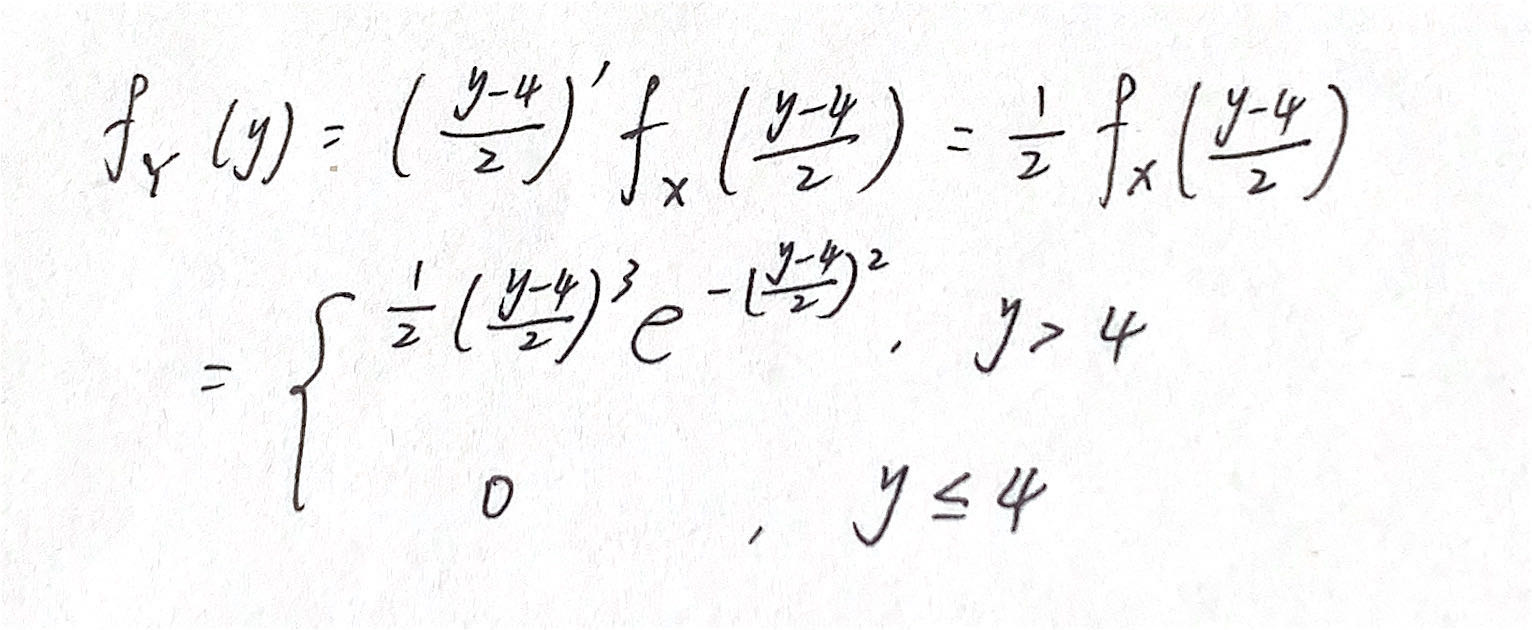 f_Y (y) = (\frac{y-4}{2})' f_X (\frac{y-4}{2}) = \frac{1}{2} f_X (\frac{y-4}{2})
= \begin{cases} \frac{1}{2} (\frac{y-4}{2})^3 e^{-(\frac{y-4}{2})^2} . & y > 4
0 , & y \le 4 \end{cases}